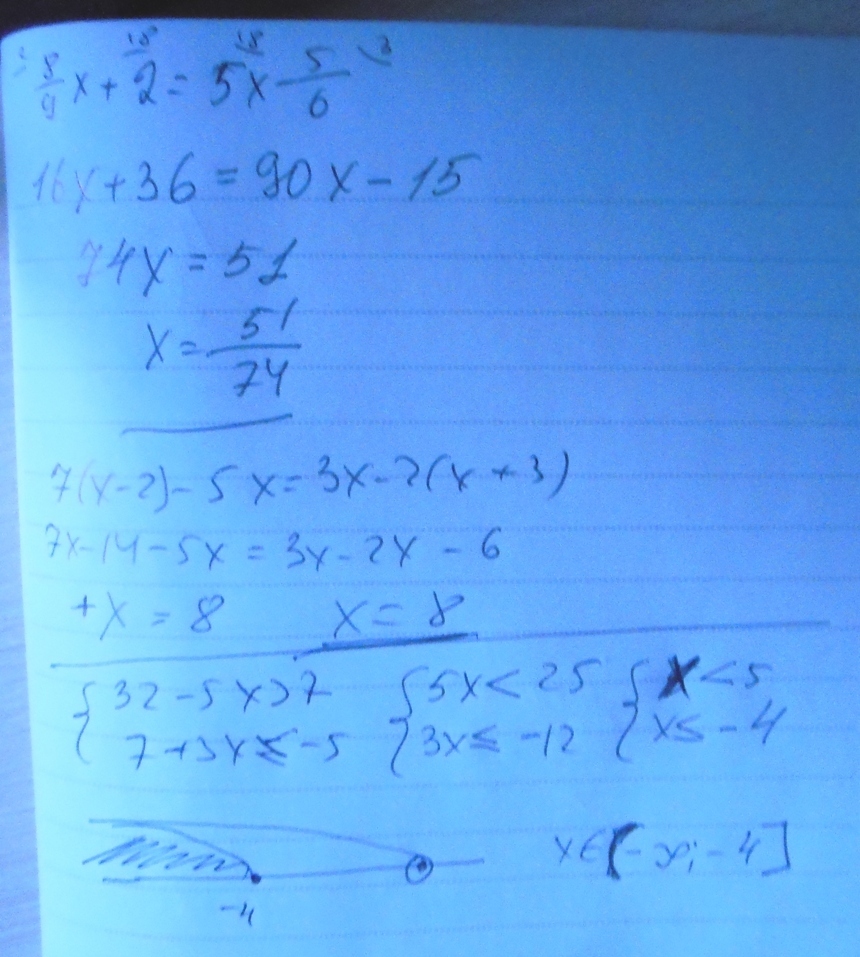 8/9 x + 2 = 5x - 5/6
16x + 36 = 90x - 15
74x = 51
x = 51/74
7(x-2) - 5x = 3x - 2(x + 3)
7x - 14 - 5x = 3x - 2x - 6
+x = 8 x = 8
{32 - 5x > 7 {5x < 25 {x < 5
{7 + 3x ≤ -5 {3x ≤ -12 {x ≤ -4
-4
x ∈ (-∞; -4]